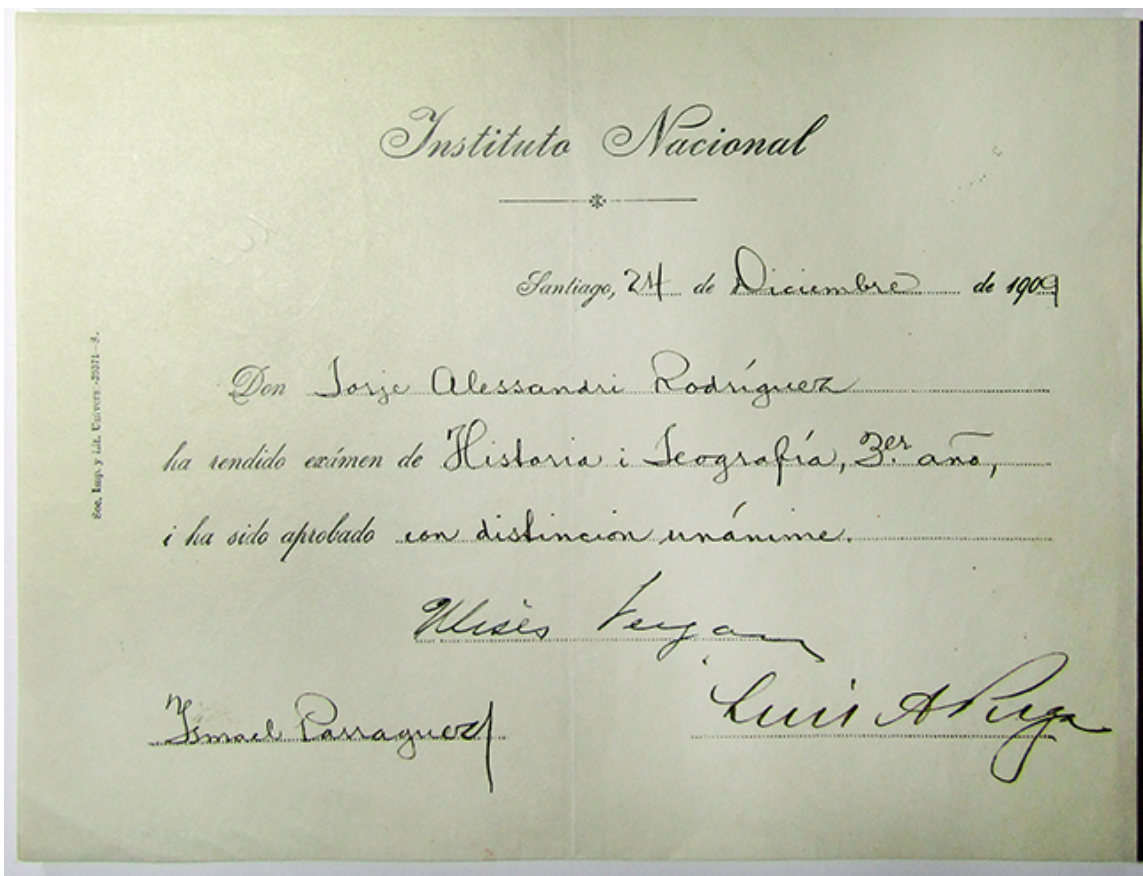 Instituto Nacional
Santiago, 24 de Diciembre de 1909
Don Jorje Alessandri Rodríguez
ha rendido exámen de Historia i Jeografía, 3.er año,
i ha sido aprobado con distincion unánime.
Ulises Vergara
Ismael Parraguez
Luis A Puga
Soc. Imp. y Lit. Univers.